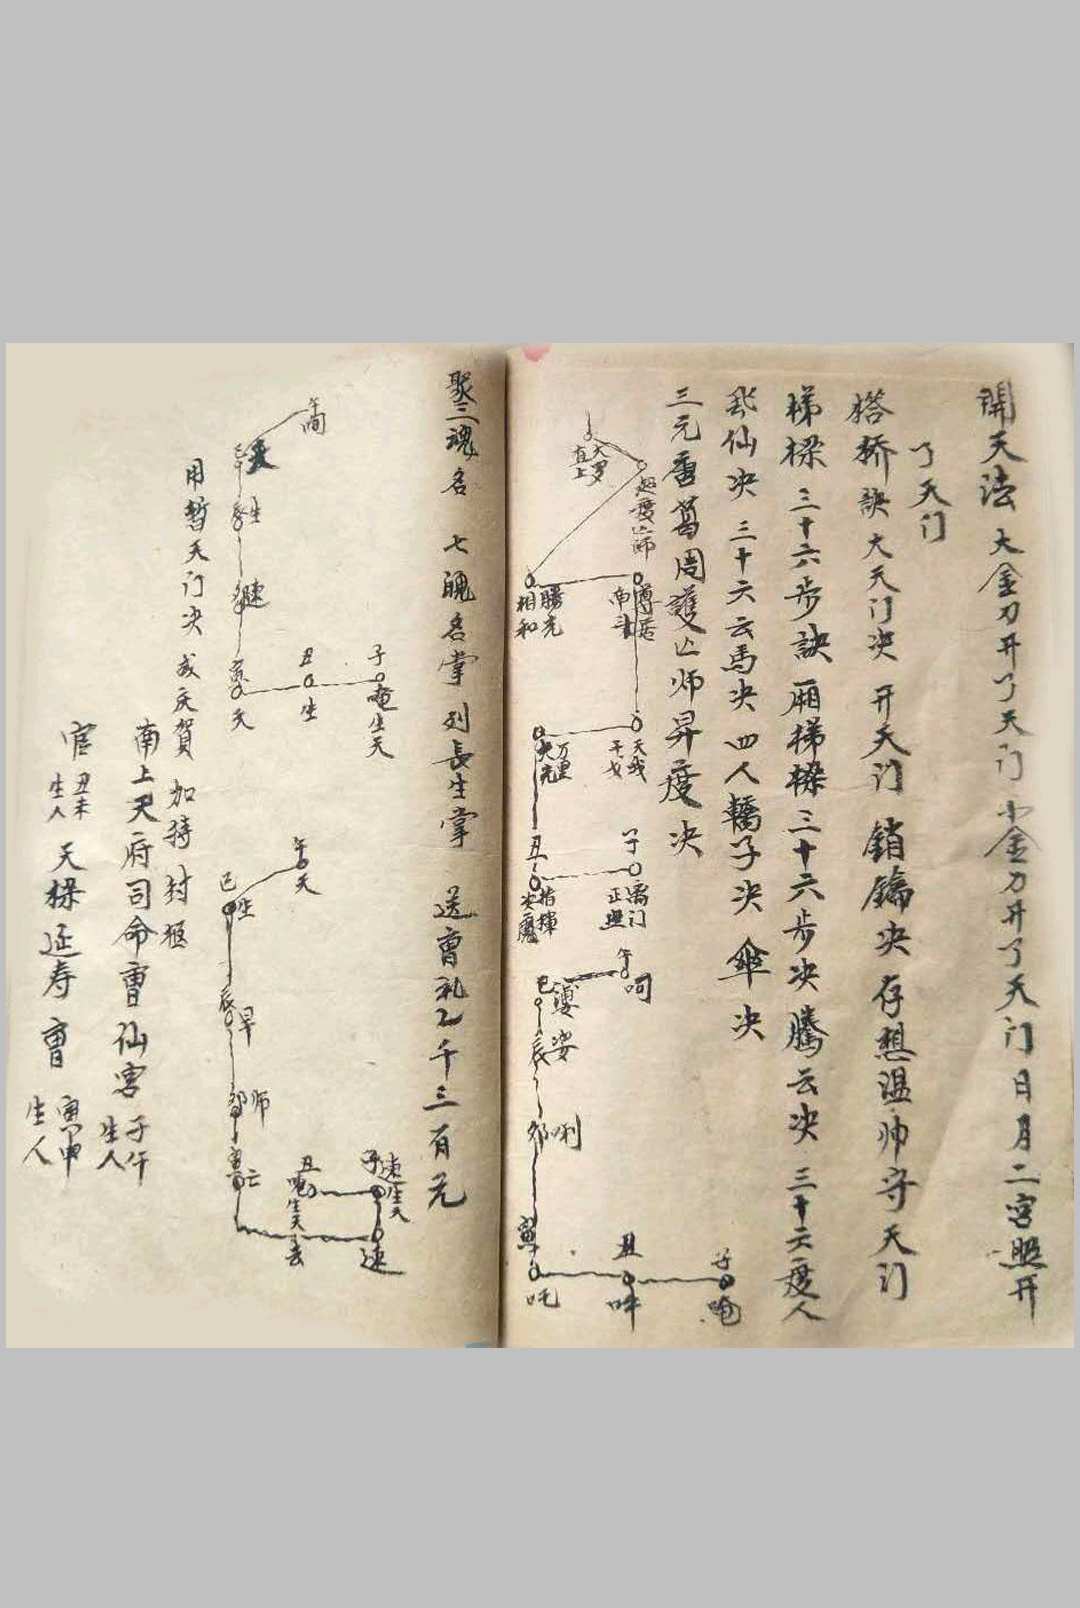 開天法 大金刀开了天门 小金刀开了天门日月二宫照开
了天门
搭桥訣大天门决 开天门 銷鑰决 存想温帅守天门
梯樑 三十六步訣 厢梯樑三十六步决 腾云决 三十六度人
飛仙决 三十六云馬决 四人轎子决 傘决
三元唐葛周護亾师昇度决
大罗
直上
超度亾师
勝光
相和
南斗
天或
干戈
万里
丑
指揮
子
正照
午
呵
巳
婆娑
辰
卯
唎
寅
吒
丑
吽
子
唵
聚三魂名 七魄名掌 列長生掌 送曹礼乙千三百元
午
巳
辰
生
卯
速
寅
天
丑
生
子
唵生天
午
天
巳
生
辰
早
卯
师
寅
亡
去
丑
唵生天
子
速生天
速
用暫天门决 成庆賀 加持封柩
南上天府司命曹仙官 子午
生人
官 丑未
生人
天樑延寿曹 寅申
生人